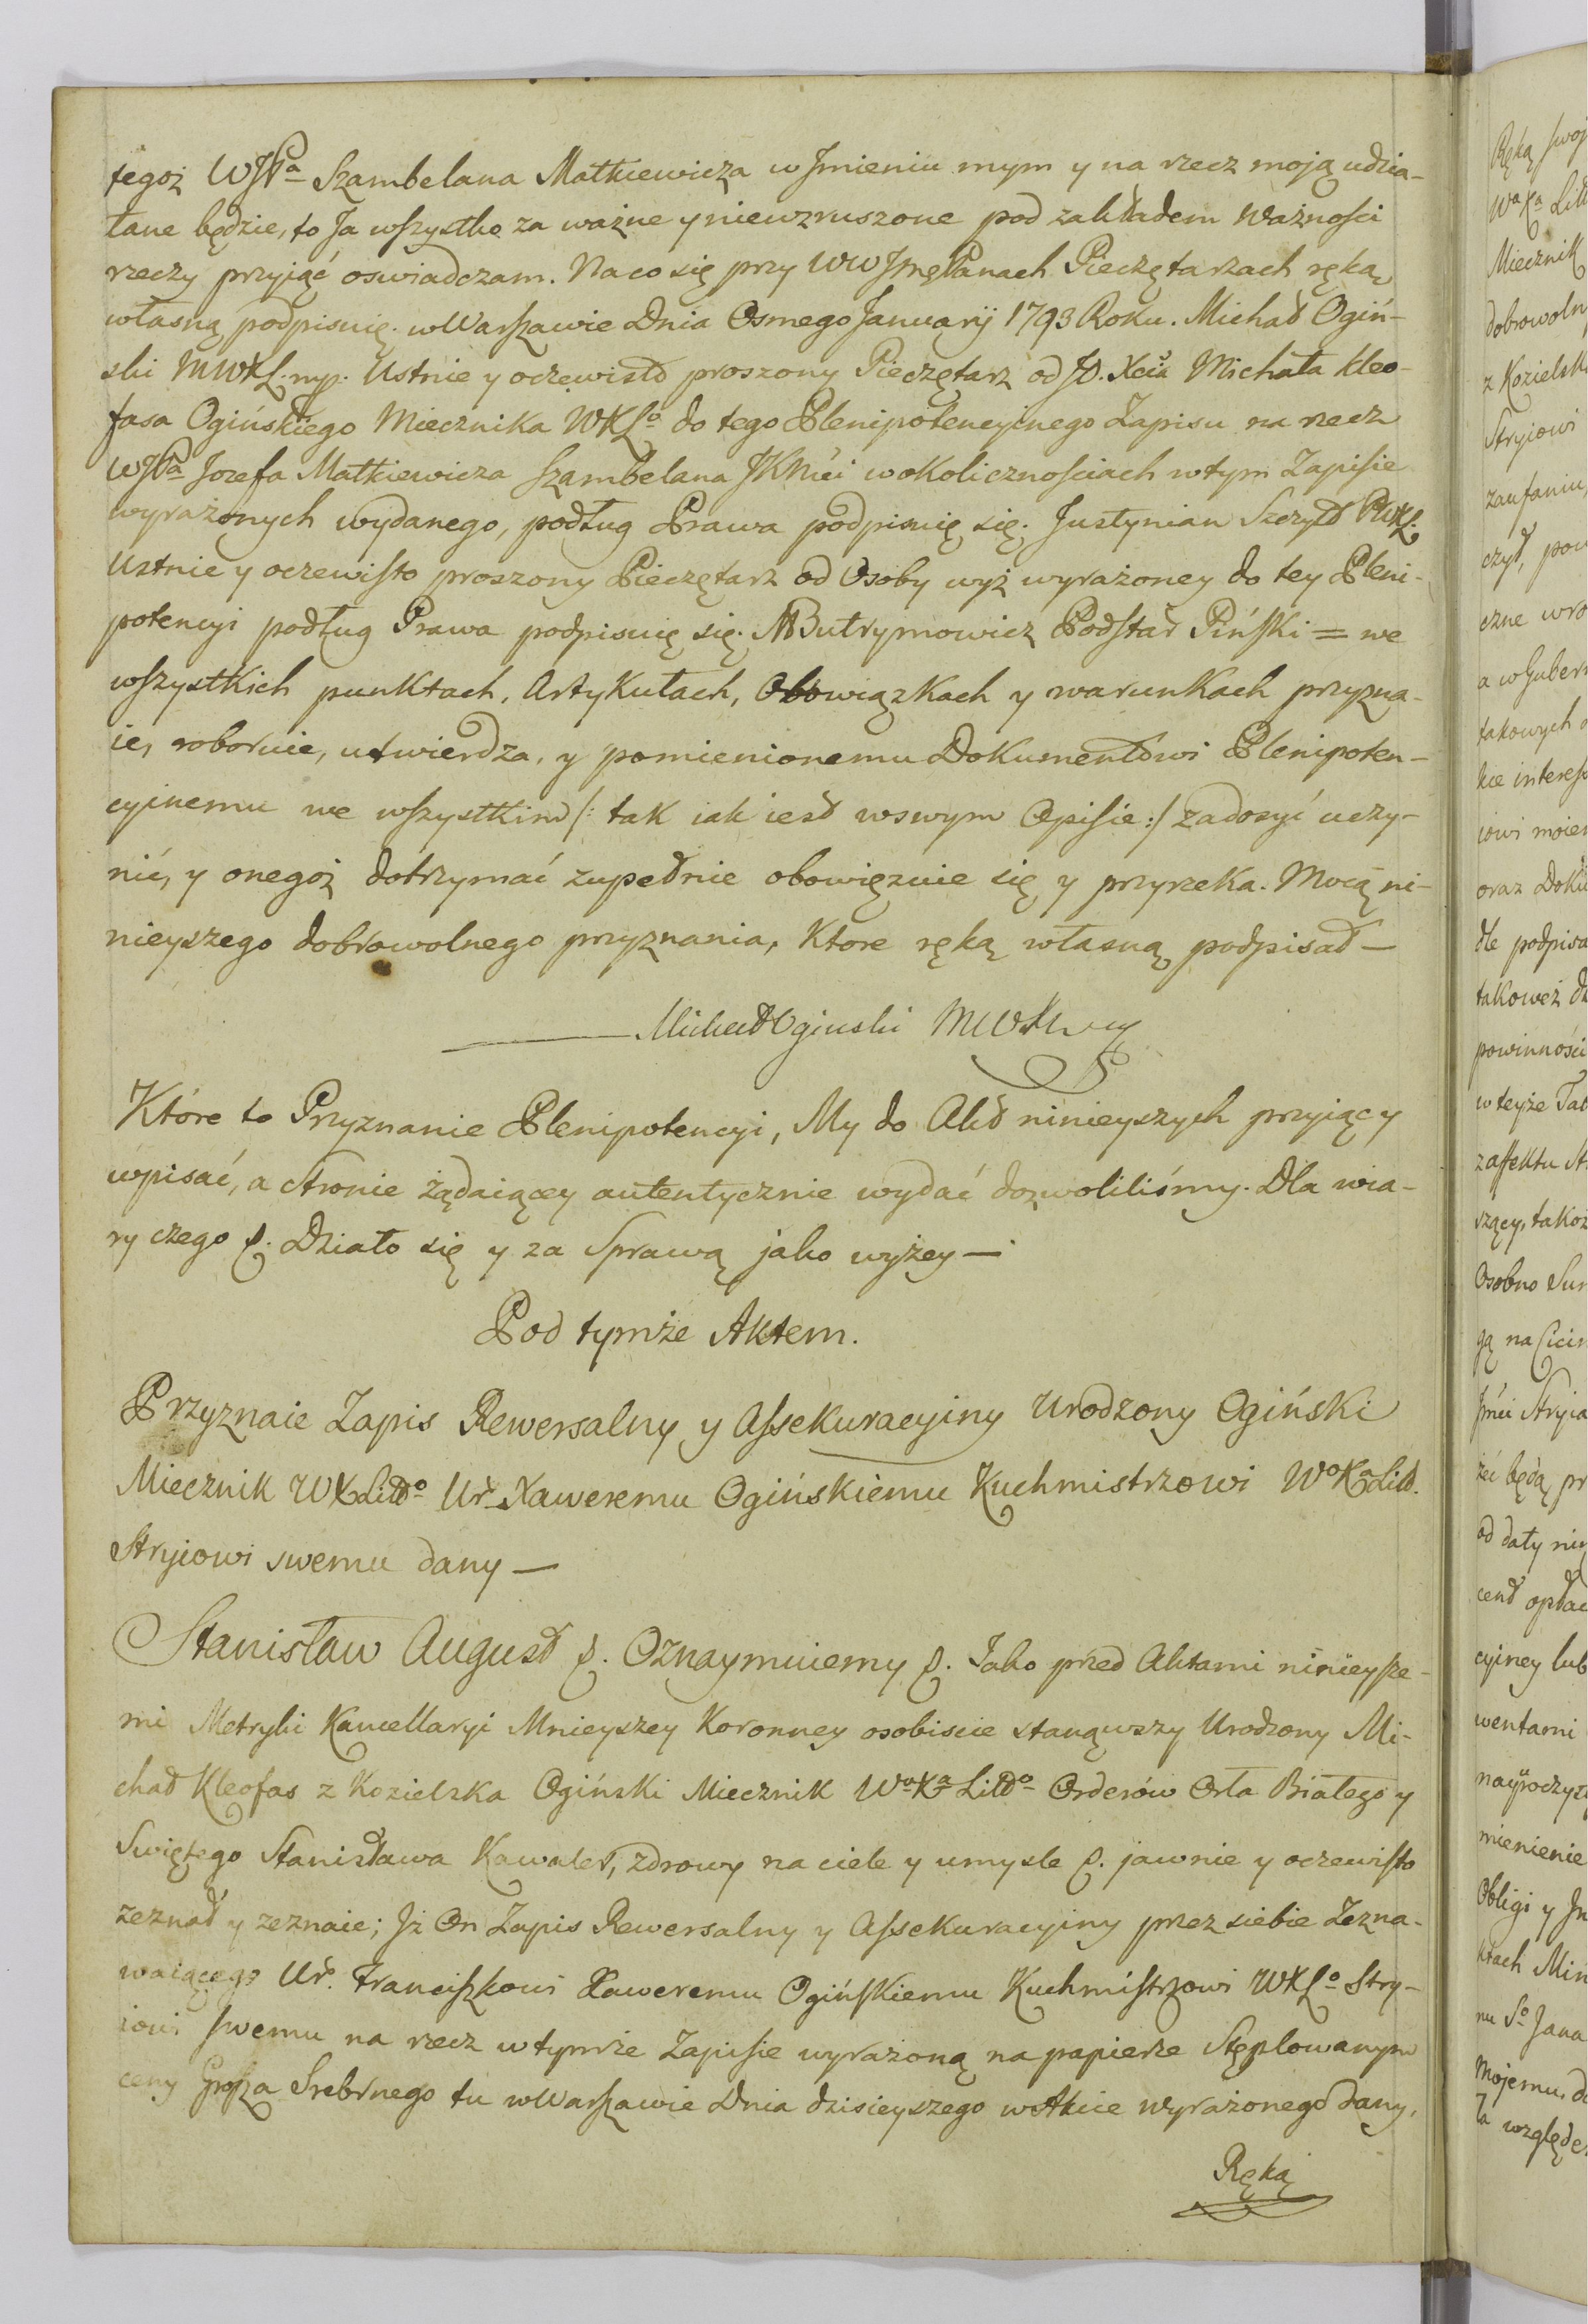 tegoż WJPa Szambelana Matkiewicza w Jmieniu mym y na rzecz moją udzia-
łane będzie, to Ja wszystko za ważne y niewzruszone pod zakładem Ważności
rzeczy przyjąć oswiadczam. Na co się przy WW JmęPanach Pieczętarzach ręką
własną podpisuię. w Warszawie Dnia Osmego Januarij 1793 Roku. Michał Ogiń-
ski MWXL. mp. Ustnie y oczewisto proszony Pieczętarz od JO. Xcia Michała Kleo-
fasa Ogińskiego Miecznika WXLo do tego Plenipotencyinego Zapisu na rzecz
WJPa Jozefa Matkiewicza Szambelana JKMci w okolicznościach w tym Zapisie
wyrażonych wydanego, podług Prawa podpisuię się. Justynian Szczytt PWXL.
Ustnie y oczewisto proszony Pieczętarz od Osoby wyż wyrażoney do tey Pleni-
potencyi podług Prawa podpisuię się. MButrymowicz Podstar Piński = we
wszystkich punktach, Artykułach, Obowiązkach y warunkach przyzna-
ie, roboruie, utwierdza, y pomienionemu Dokumentowi Plenipoten-
cyinemu we wszystkim /: tak iak iest w swym Opisie :/ zadosyć uczy-
nić, y onegoż dotrzymać zupełnie obowięzuie się y przyrzeka. Mocą ni-
nieyszego dobrowolnego przyznania, Ktore ręką własną podpisał —
Michał Oginski MWXL mp
Które to Przyznanie Plenipotencyi, My do Akt ninieyszych przyiąć y
wpisać, a stronie żądaiącey autentycznie wydać dozwoliliśmy. Dla wia-
ry czego &. Działo się y za Sprawą jako wyżey —
Pod tymże Aktem.
Przyznaie Zapis Rewersalny y Assekuracyiny Urodzony Ogiński
Miecznik WXLitto Ur. Xaweremu Ogińskiemu Kuchmistrzowi Wo Xa Litt.
Stryiowi swemu dany —
Stanisław August &. Oznaymuiemy &. Jako przed Aktami ninieysze-
mi Metryki Kancellaryi Mnieyszey Koronney osobiscie stanąwszy Urodzony Mi-
chał Kleofas z Kozielska Ogiński Miecznik Wo Xa Litto Orderów Orła Białego y
Swiętego Stanisława Kawaler, zdrowy na ciele y umysle &. jawnie y oczewisto
zeznał y zeznaie; Jż On Zapis Rewersalny y Assekuracyiny przez siebie Zezna-
waiącego Ur. Franciszkowi Xaweremu Ogińskiemu Kuchmistrzowi WXLo Stry-
iowi swemu na rzecz w tymże Zapisie wyrażoną na papierze Stęplowanym
ceny Grosza Srebrnego tu w Warszawie Dnia dzisieyszego w Akcie wyrażonego dany,
Ręką